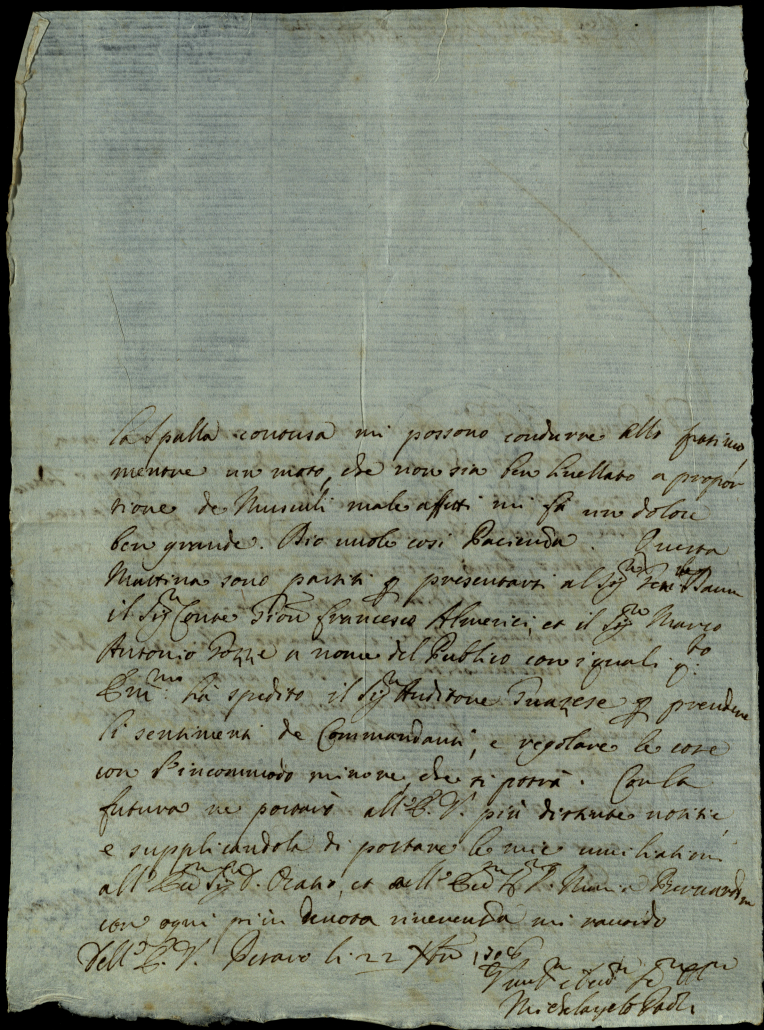 la spalla contusa mi possono condurre allo
mentre un moto, che non sia ben livellato a propor
tione de Muscoli male affetti mi fà un dolore
ben grande. Dio vuole così Pacienza. Questa
Mattina sono partiti p presentarsi al Sig.r
il Sig.r Conte Gion Francesco Almerici, et il Sig.r Marco
Antonio Gozze a nome del Publico con i quali q.to
Em.mo hà spedito il Sig.r Auditore p prendere
li sentimenti de Commandanti, e regolare le cose
con l'incommodo minore, che si potrà. Con la
futura ne portarò all'E. V. più distinte notitie,
e supplicandola di portare le mie umiliationi
all' Sig.r D. Oratio, et all'
con ogni più devota riverenza mi raccordo
Dell' E. V. Pesaro li 22 Xbre 1708
Michelangelo